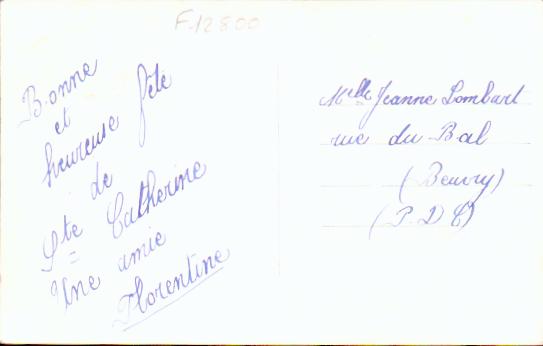 F-12800
Bonne
et
heureuse fête
de
Ste Catherine
Une amie
Florentine
Melle Jeanne Lombart
rue du Bal
(Beuvry)
(P.D.C)